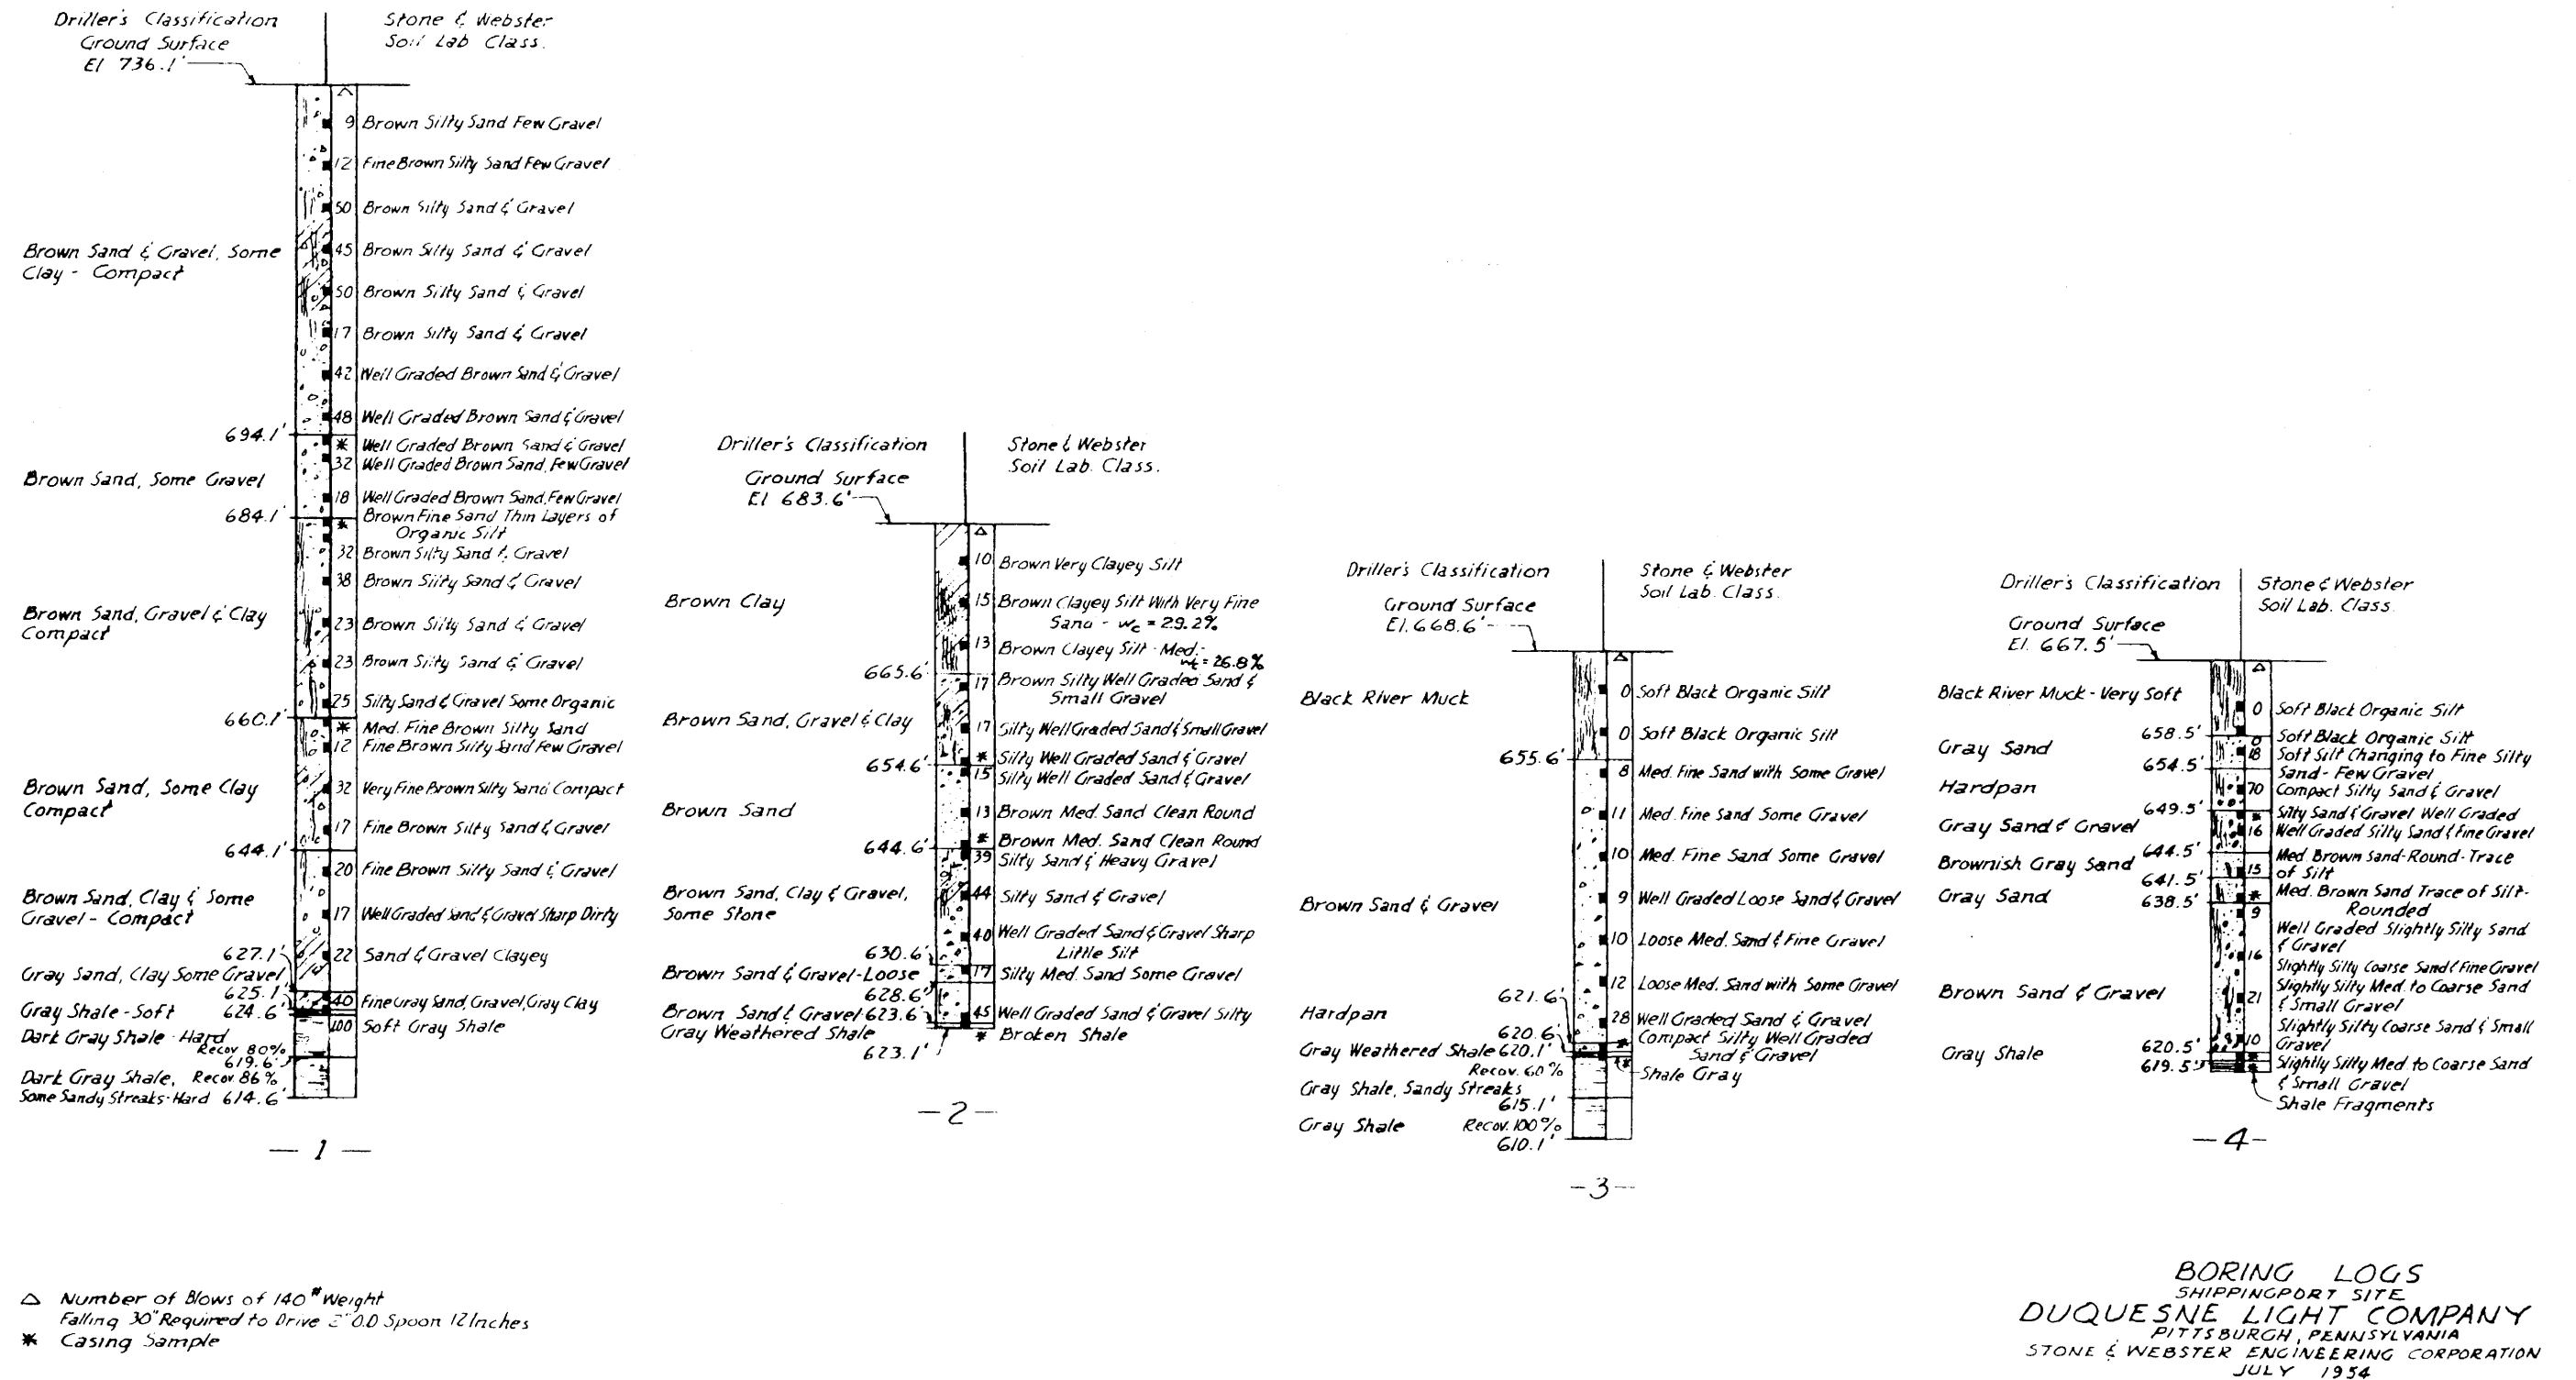 Driller's Classification
Ground Surface
El 736.1'
Stone & Webster
Soil Lab Class.
Brown Sand & Gravel, Some
Clay - Compact
694.1'
Brown Sand, Some Gravel
684.1'
Brown Sand, Gravel & Clay
Compact
660.1'
Brown Sand, Some Clay
Compact
644.1'
Brown Sand, Clay & Some
Gravel - Compact
627.1'
Gray Sand, Clay Some Gravel
625.1'
Gray Shale - Soft 624.6'
Dark Gray Shale - Hard
Recov 80%
619.6'
Dark Gray Shale, Recov. 86%
Some Sandy Streaks-Hard 614.6'
△
9 Brown Silty Sand Few Gravel
12 Fine Brown Silty Sand Few Gravel
50 Brown Silty Sand & Gravel
45 Brown Silty Sand & Gravel
50 Brown Silty Sand & Gravel
17 Brown Silty Sand & Gravel
42 Well Graded Brown Sand & Gravel
48 Well Graded Brown Sand & Gravel
* Well Graded Brown Sand & Gravel
32 Well Graded Brown Sand, Few Gravel
18 Well Graded Brown Sand, Few Gravel
* Brown Fine Sand Thin Layers of
Organic Silt
32 Brown Silty Sand & Gravel
38 Brown Silty Sand & Gravel
23 Brown Silty Sand & Gravel
23 Brown Silty Sand & Gravel
25 Silty Sand & Gravel Some Organic
* Med. Fine Brown Silty Sand
12 Fine Brown Silty Sand Few Gravel
32 Very Fine Brown Silty Sand Compact
17 Fine Brown Silty Sand & Gravel
20 Fine Brown Silty Sand & Gravel
17 Well Graded Sand & Gravel Sharp Dirty
22 Sand & Gravel Clayey
40 Fine Gray Sand, Gravel, Gray Clay
100 Soft Gray Shale
— 1 —
Driller's Classification
Ground Surface
El 683.6'
Stone & Webster
Soil Lab. Class.
Brown Clay
665.6'
Brown Sand, Gravel & Clay
654.6'
Brown Sand
644.6'
Brown Sand, Clay & Gravel,
Some Stone
630.6'
Brown Sand & Gravel-Loose
628.6'
Brown Sand & Gravel 623.6'
Gray Weathered Shale
623.1'
△
10 Brown Very Clayey Silt
15 Brown Clayey Silt With Very Fine
Sand - wc = 29.2%
13 Brown Clayey Silt - Med. -
wc = 26.8%
17 Brown Silty Well Graded Sand &
Small Gravel
17 Silty Well Graded Sand & Small Gravel
* Silty Well Graded Sand & Gravel
15 Silty Well Graded Sand & Gravel
13 Brown Med. Sand Clean Round
* Brown Med. Sand Clean Round
39 Silty Sand & Heavy Gravel
44 Silty Sand & Gravel
40 Well Graded Sand & Gravel Sharp
Little Silt
17 Silty Med. Sand Some Gravel
45 Well Graded Sand & Gravel Silty
* Broken Shale
— 2 —
Driller's Classification
Ground Surface
El. 668.6'
Stone & Webster
Soil Lab. Class.
Black River Muck
655.6'
Brown Sand & Gravel
621.6'
Hardpan
620.6'
Gray Weathered Shale 620.1'
Recov. 60%
Gray Shale, Sandy Streaks
615.1'
Gray Shale Recov. 100%
610.1'
△
0 Soft Black Organic Silt
0 Soft Black Organic Silt
8 Med. Fine Sand with Some Gravel
11 Med. Fine Sand Some Gravel
10 Med. Fine Sand Some Gravel
9 Well Graded Loose Sand & Gravel
10 Loose Med. Sand & Fine Gravel
12 Loose Med. Sand with Some Gravel
28 Well Graded Sand & Gravel
* Compact Silty Well Graded
Sand & Gravel
* Shale Gray
— 3 —
Driller's Classification
Ground Surface
El. 667.5'
Stone & Webster
Soil Lab. Class.
Black River Muck - Very Soft
658.5'
Gray Sand
654.5'
Hardpan
649.5'
Gray Sand & Gravel
644.5'
Brownish Gray Sand
641.5'
Gray Sand
638.5'
Brown Sand & Gravel
620.5'
Gray Shale
619.5'
△
0 Soft Black Organic Silt
0 Soft Black Organic Silt
18 Soft Silt Changing to Fine Silty
Sand - Few Gravel
70 Compact Silty Sand & Gravel
* Silty Sand & Gravel Well Graded
16 Well Graded Silty Sand & Fine Gravel
Med. Brown Sand-Round-Trace
15 of Silt
* Med. Brown Sand Trace of Silt-
Rounded
9
Well Graded Slightly Silty Sand
& Gravel
16
Slightly Silty Coarse Sand & Fine Gravel
Slightly Silty Med. to Coarse Sand
21 & Small Gravel
Slightly Silty Coarse Sand & Small
10 Gravel
* Slightly Silty Med. to Coarse Sand
& Small Gravel
* Shale Fragments
— 4 —
△ Number of Blows of 140# Weight
Falling 30" Required to Drive 2" O.D Spoon 12 Inches
* Casing Sample
BORING LOGS
SHIPPINGPORT SITE
DUQUESNE LIGHT COMPANY
PITTSBURGH, PENNSYLVANIA
STONE & WEBSTER ENGINEERING CORPORATION
JULY 1954